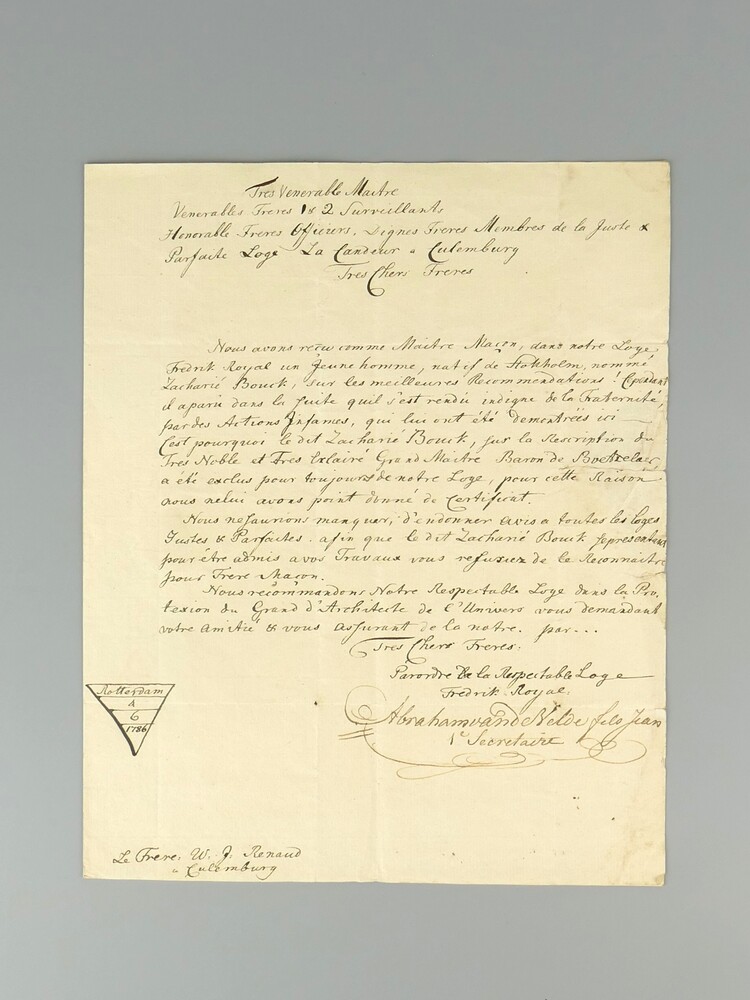 Tres Venerable Maitre
Venerables Freres 1 & 2 Surveillants
Honorable Freres Officiers, Dignes Freres Membres de la Juste &
Parfaite Loge La Candeur a Culemburg
Tres Chers Freres
Nous avons recu comme Maitre Maçon, dans notre Loge
Fredrik Royal un Jeune homme, natif de Stokholm, nommé
Zacharié Bouck, sur les meilleures Recommendations! Cependant
il a paru dans la suite quil s'est rendu indigne de la Fraternité,
par des Actions Infames, qui lui ont été demontréés ici
C'est pourquoi le dit Zacharié Bouck, sur la Rescription du
Tres Noble et Tres Eclairé Grand Maitre Baron de Boetzelaer
a été exclus pour toujours de notre Loge, pour cette Raison
nous ne lui avons point donné de Certificat.
Nous ne saurions manquer, d'en donner avis a toutes les loges
Justes & Parfaites. afin que le dit Zacharié Bouck se presentant
pour étre admis a vos Travaux vous refusiez de le Reconnaitre
pour Frere Maçon.
Nous recommandons Notre Respectable Loge dans la Pro-
texion du Grand d'Architecte de l'Univers vous demandant
votre amitié & vous assurant de la notre. par...
Tres Chers Freres.
Par ordre de la Respectable Loge
Fredrik Royal.
Abraham van d Nelde fils Jean
1r Secretaire
Rotterdam
A
6
1786
Le Frere. W. J. Renaud
a Culemburg